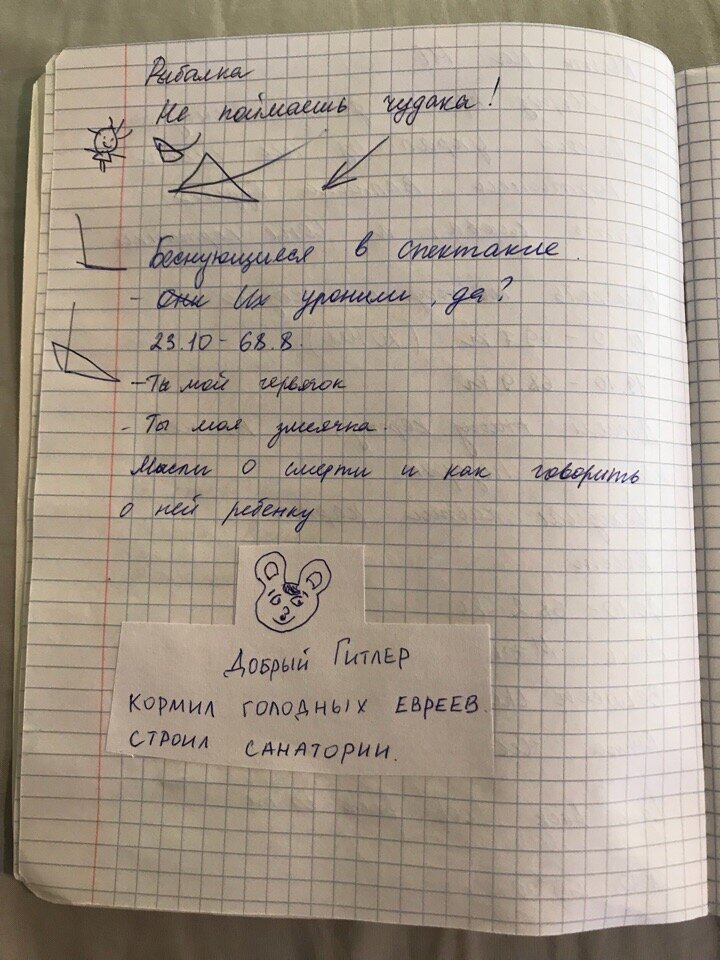 Рыбалка
Не поймаешь чудака!
Беснующиеся в спектакле.
- Они Их уронили, да?
23.10 - 68.8.
- Ты мой червячок
- Ты моя змеячка.
Мысли о смерти и как говорить
о ней ребенку
ДОБРЫЙ ГИТЛЕР
КОРМИЛ ГОЛОДНЫХ ЕВРЕЕВ.
СТРОИЛ САНАТОРИИ.